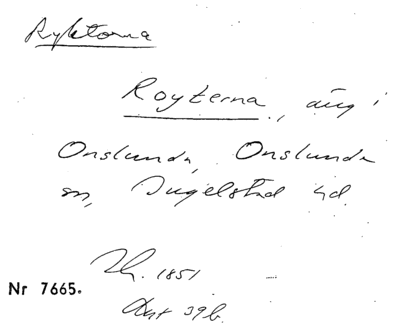 Ryktorna
Royterna, äng i
Onslunda, Onslunda
sn, Ingelstad hd.
Lh. 1851
Nr 7665.
Akt 39 b.